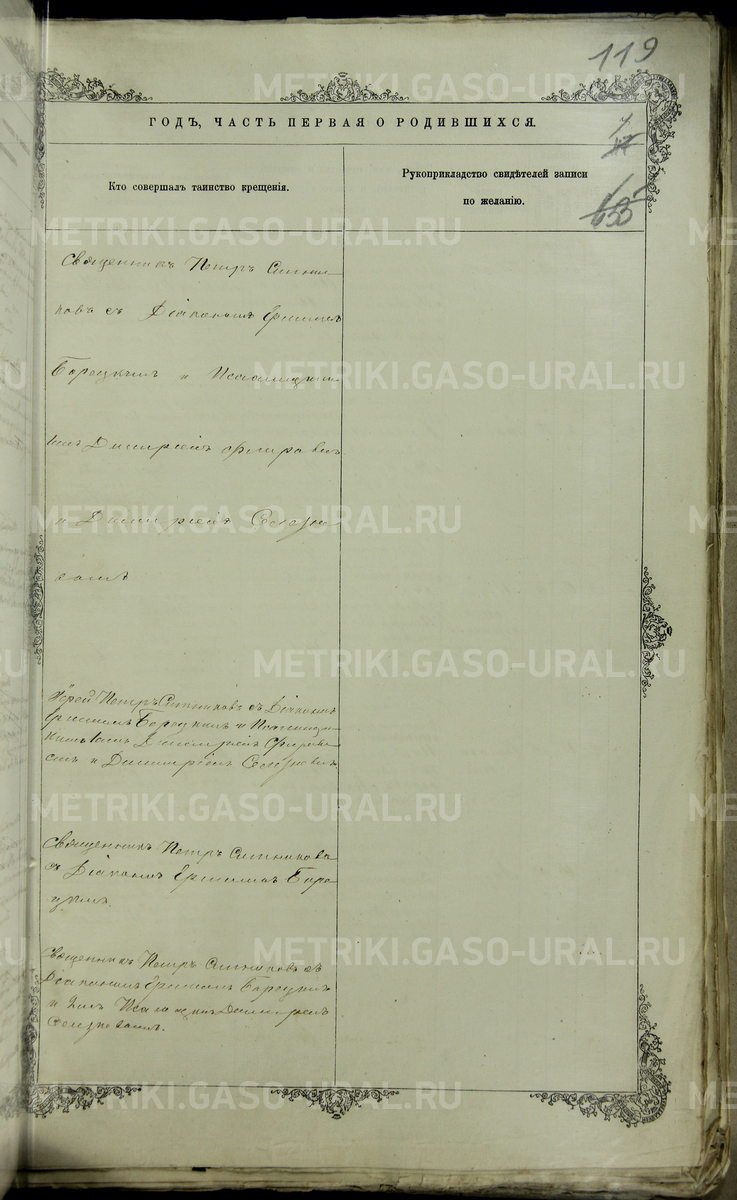 119
ГОДЪ, ЧАСТЬ ПЕРВАЯ О РОДИВШИХСЯ.
Кто совершалъ таинство крещенія.
Рукоприкладство свидѣтелей записи
по желанію.
Священникъ Петръ Ситни-
ковъ съ Діакономъ
Борецкимъ и
Димитріемъ Фигуровымъ
и Димитріемъ Селезне-
вымъ
Іерей Петръ Ситниковъ съ Діакономъ
Борецкимъ и
Димитріемъ
и Димитріемъ Селезневымъ
Священникъ Петръ Ситниковъ
съ Діакономъ Боре-
цкимъ.
Священникъ Петръ Ситниковъ съ
Діакономъ Борецкимъ
и Димитріемъ
Селезневымъ.
METRIKI.GASO-URAL.RU